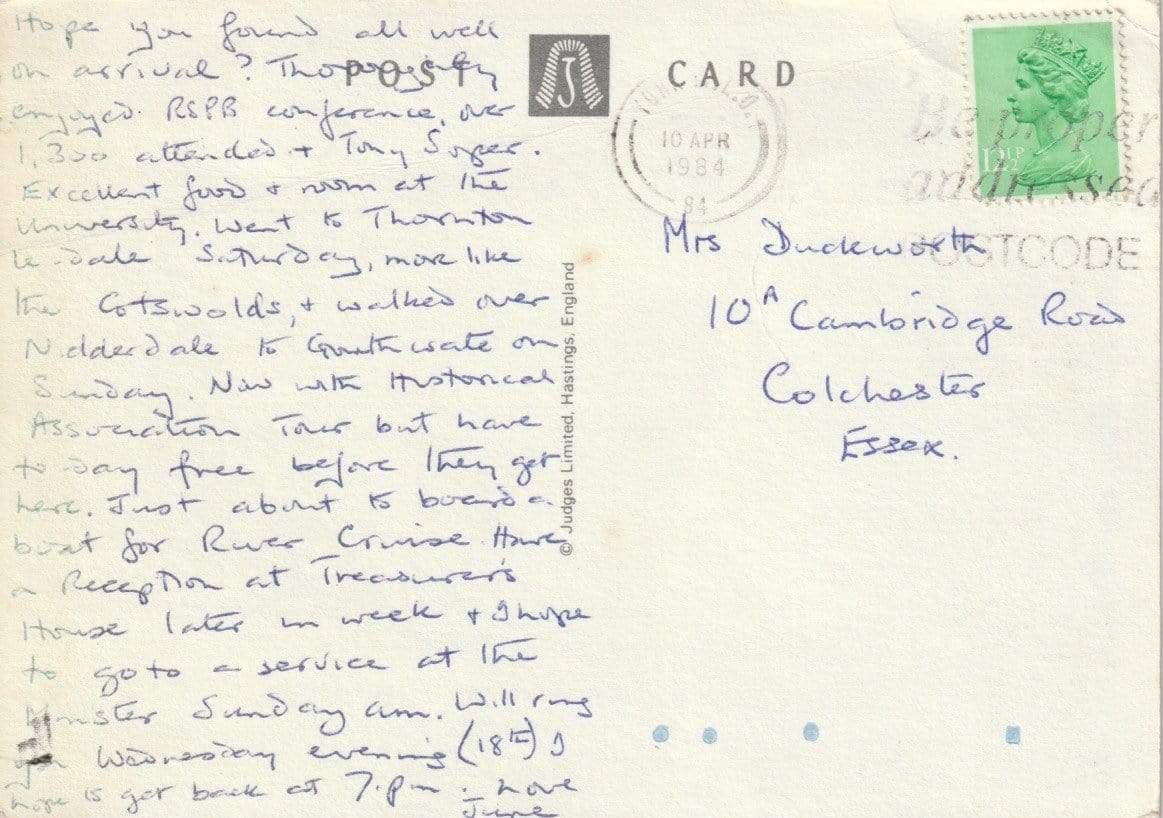 Hope you found all well
on arrival? Thoroughly
enjoyed RSPB conference, over
1,300 attended + Tony Soper.
Excellent food + room at the
University. Went to Thornton
le-dale Saturday, more like
the Cotswolds, + walked over
Nidderdale to Gouthwaite on
Sunday. Now with Historical
Association Tour but have
to-day free before they get
here. Just about to board a
boat for River Cruise. Have
a Reception at Treasurer's
House later in week + I hope
to go to a service at the
Minster Sunday am. Will ring
you Wednesday evening (18th) I
hope to get back at 7.pm. Love
June
POST CARD
J
© Judges Limited, Hastings, England
10 APR
1984
84
12½P
Be proper
addressed
POSTCODE
Mrs Duckworth
10A Cambridge Road
Colchester
Essex.